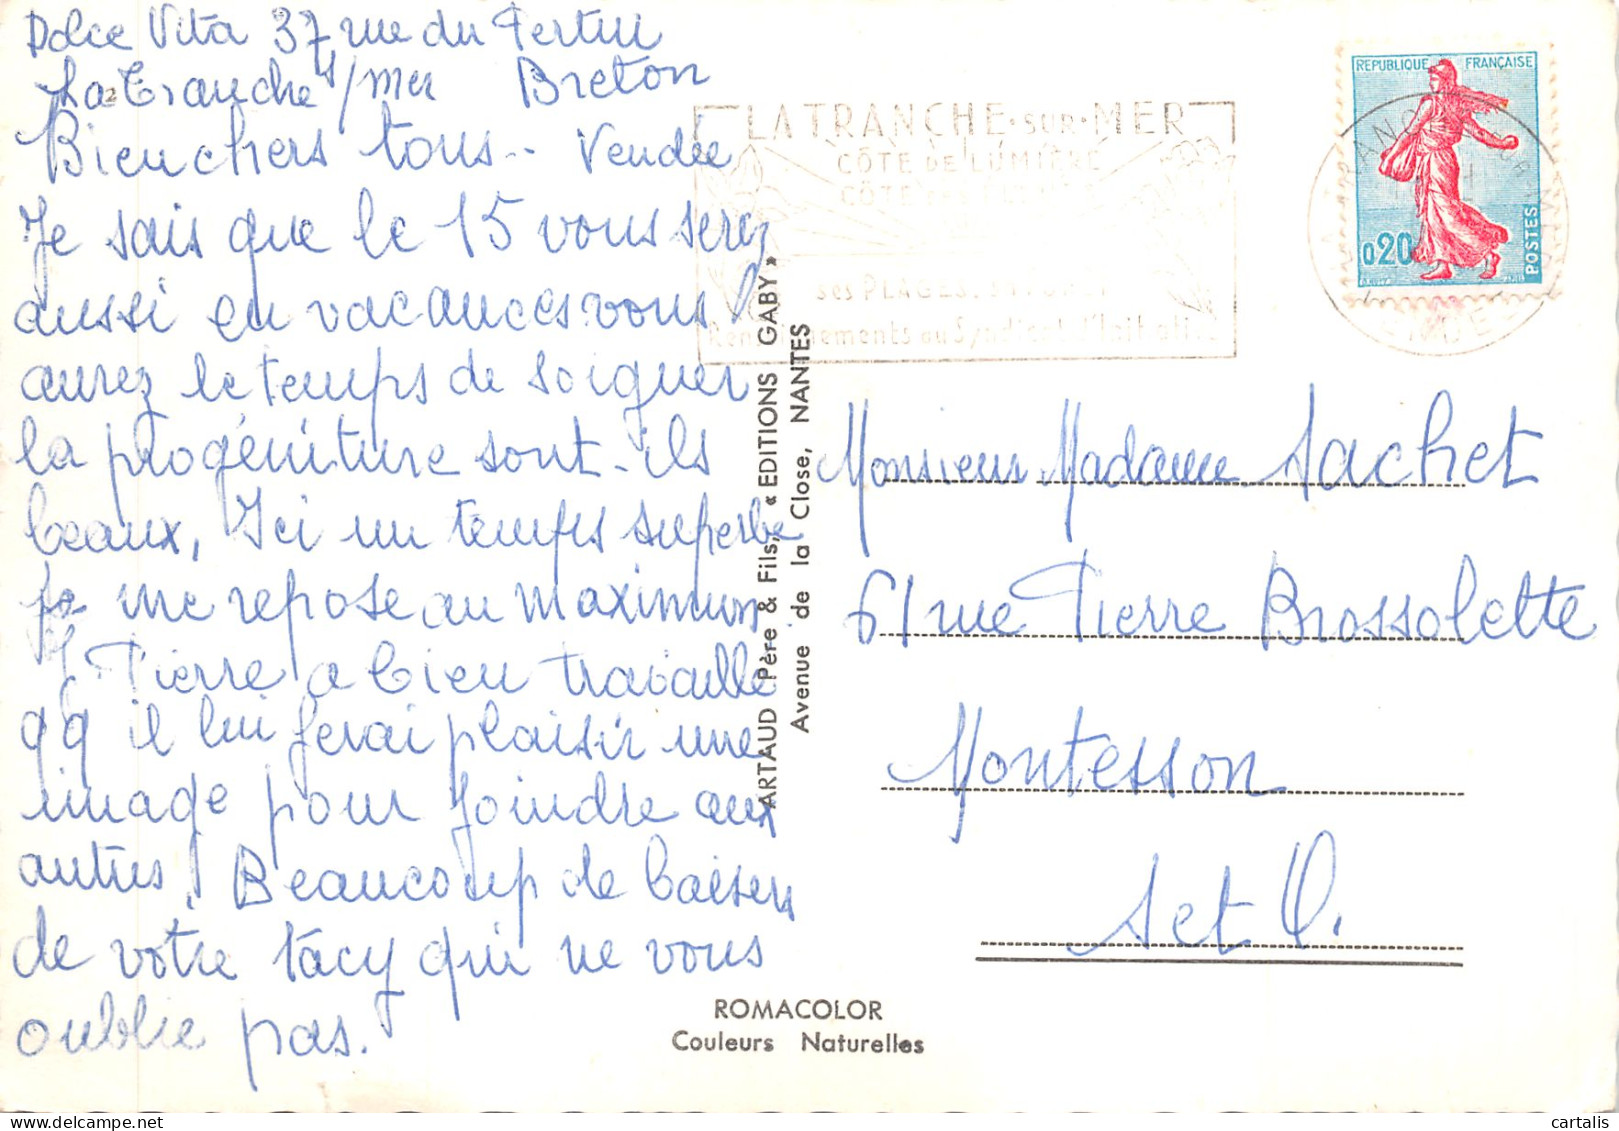 Dolce Vita 37, rue du Pertui
La Tranche s/mer Breton
Bien chers tous.. Vendée
Je sais que le 15 vous serez
aussi en vacances vous
aurez le temps de soigner
la progéniture sont-ils
beaux, Ici un temps superbe
je me repose au maximum
Si Pierre a bien travaillé
qq il lui ferai plaisir une
image pour joindre aux
autres. Beaucoup de baisers
de votre Tacy qui ne vous
oublie pas.
LA TRANCHE-sur-MER
CÔTE DE LUMIÈRE
ses PLAGES,
Renseignements au Syndicat d'Initiative
REPUBLIQUE FRANÇAISE
0,20
POSTES
ARTAUD Père & Fils, « EDITIONS GABY »
Avenue de la Close, NANTES
Monsieur Madame Sachet
61 rue Pierre Brossolette
Montesson
S et O.
ROMACOLOR
Couleurs Naturelles
cartalis